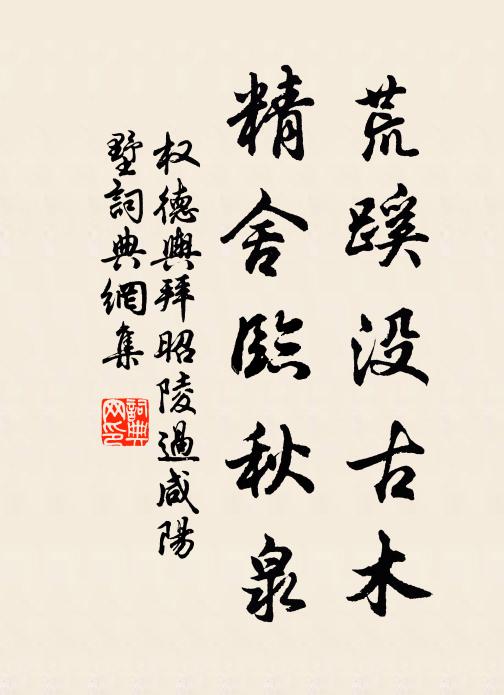 荒蹊没古木
精舍臨秋泉
权德輿拜昭陵過咸陽
墅詞典網集
詞典
网印